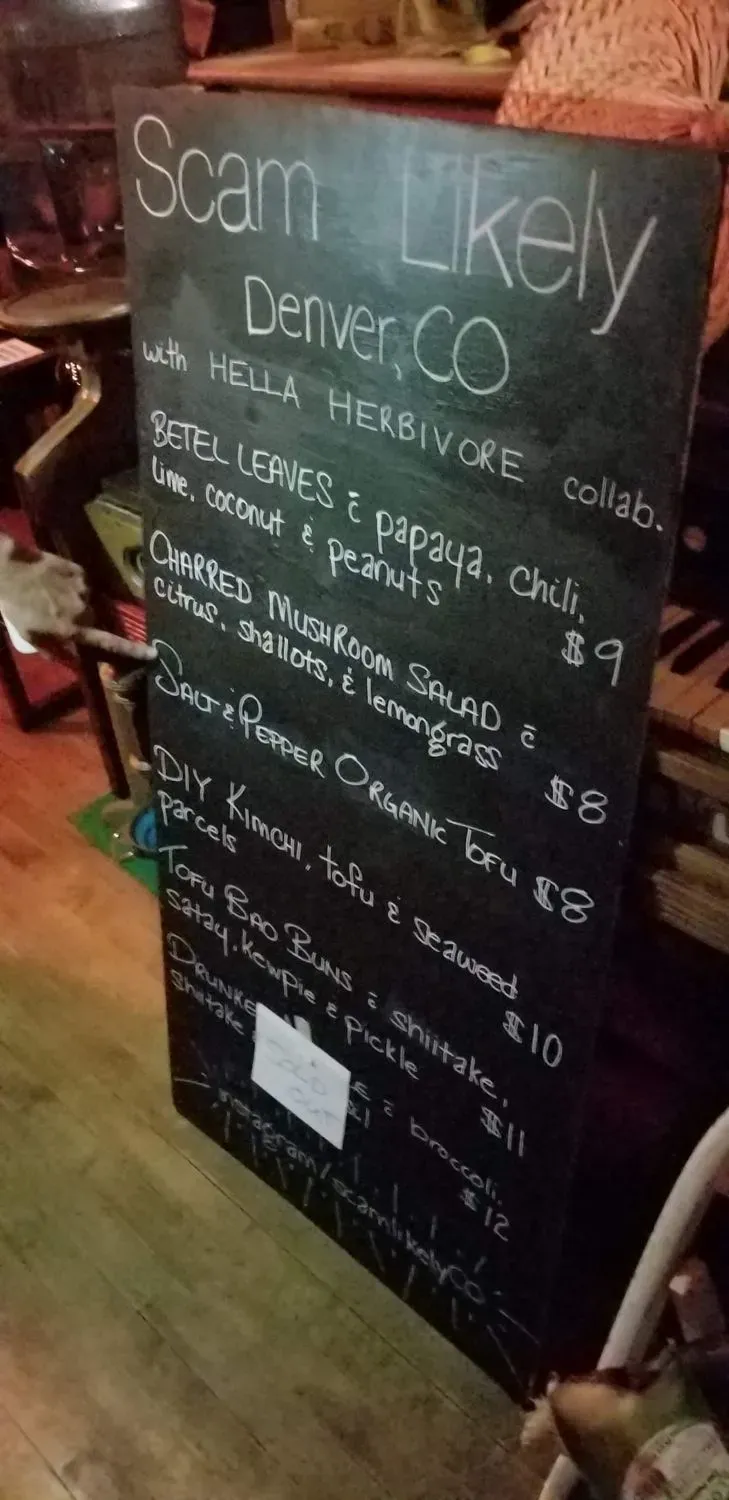 Scam Likely
Denver, CO
with HELLA HERBIVORE collab.
BETEL LEAVES c̄ papaya, chili,
lime, coconut & peanuts $9
CHARRED MUSHROOM SALAD c̄
citrus, shallots, & lemongrass $8
SALT & PEPPER ORGANIC TOFU $8
DIY KIMCHI, tofu & seaweed
parcels $10
TOFU BAO BUNS c̄ shiitake,
satay, kewpie & pickle $11
c̄ broccoli,
shiitake $12
SOLD
OUT
instagram/scamlikelyCO